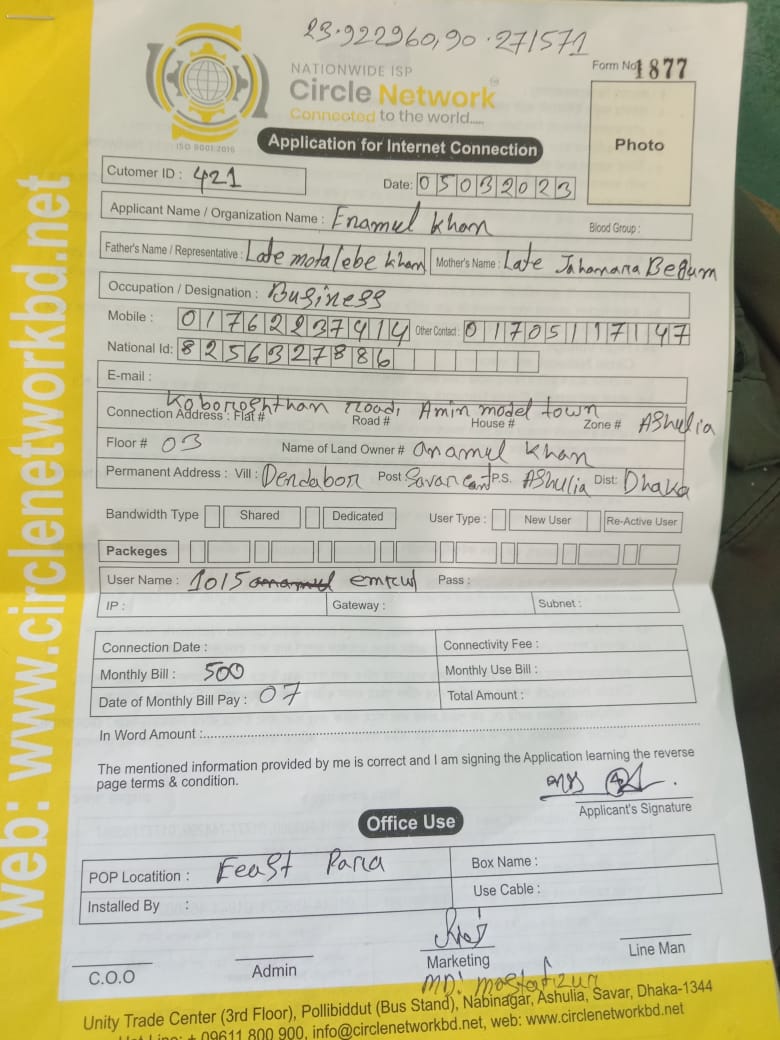 23.922960,90.271571
NATIONWIDE ISP
Circle Network
Connected to the world.....
ISO 9001:2015
Form No 1877
Photo
Application for Internet Connection
Cutomer ID : 421
Date: 05032023
Applicant Name / Organization Name : Enamul khan Blood Group :
Father's Name / Representative : Late motalebe kham Mother's Name : Late Jahamara Begum
Occupation / Designation : Business
Mobile : 01762237414 Other Contact : 01705117147
National Id: 8256327886
E-mail :
Koboroshthan Road, Amin model town
Connection Address : Flat # Road # House # Zone # AShulia
Floor # 03 Name of Land Owner # anamul khan
Permanent Address : Vill : Dendabor Post Savar Cant P.S. AShulia Dist: Dhaka
Bandwidth Type Shared Dedicated User Type : New User Re-Active User
Packeges
User Name : 1015 Pass :
IP : Gateway : Subnet :
Connection Date : Connectivity Fee :
Monthly Bill : 500 Monthly Use Bill :
Date of Monthly Bill Pay : 07 Total Amount :
In Word Amount :
The mentioned information provided by me is correct and I am signing the Application learning the reverse
page terms & condition.
Applicant's Signature
Office Use
POP Locatition : Eeast Para Box Name :
Installed By : Use Cable :
C.O.O Admin Marketing Line Man
MD: mostafizur
Unity Trade Center (3rd Floor), Pollibiddut (Bus Stand), Nabinagar, Ashulia, Savar, Dhaka-1344
Hot Line: + 09611 800 900, info@circlenetworkbd.net, web: www.circlenetworkbd.net
web: www.circlenetworkbd.net